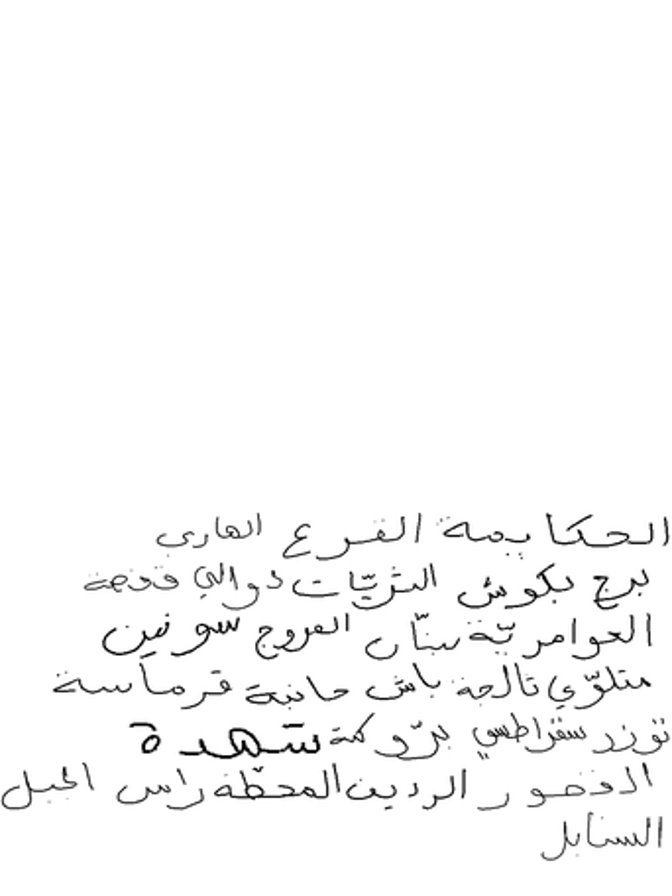 الحكايمة الفرع الهارب
برج بكوش الثريّات دوالي قفصة
العوامريّة سنّان المروج سونين
متلوّي تالجة باش حانبة قرماسة
توزر سقراطسي برّوكة شهدة
القصور الرديف المحطّة راس الجبل
السنابل